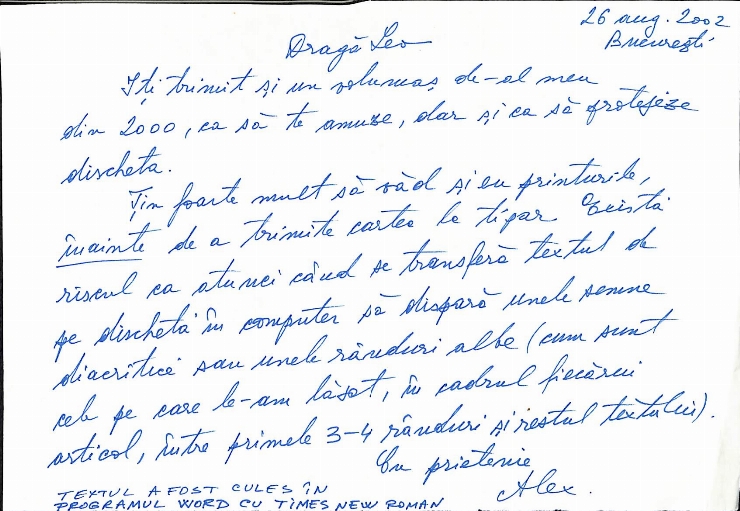 26 aug. 2002
București
Dragă Leo
Îți trimit și un volumaș de-al meu
din 2000, ca să te amuze, dar și ca să protejeze
discheta.
Țin foarte mult să văd și eu printurile,
înainte de a trimite cartea la tipar. Există
riscul ca atunci când se transferă textul de
pe dischetă în computer să dispară unele semne
diacritice sau unele rânduri albe (cum sunt
cele pe care le-am lăsat, în cadrul fiecărui
articol, între primele 3-4 rânduri și restul textului).
Cu prietenie
Alex.
TEXTUL A FOST CULES ÎN
PROGRAMUL WORD CU TIMES NEW ROMAN